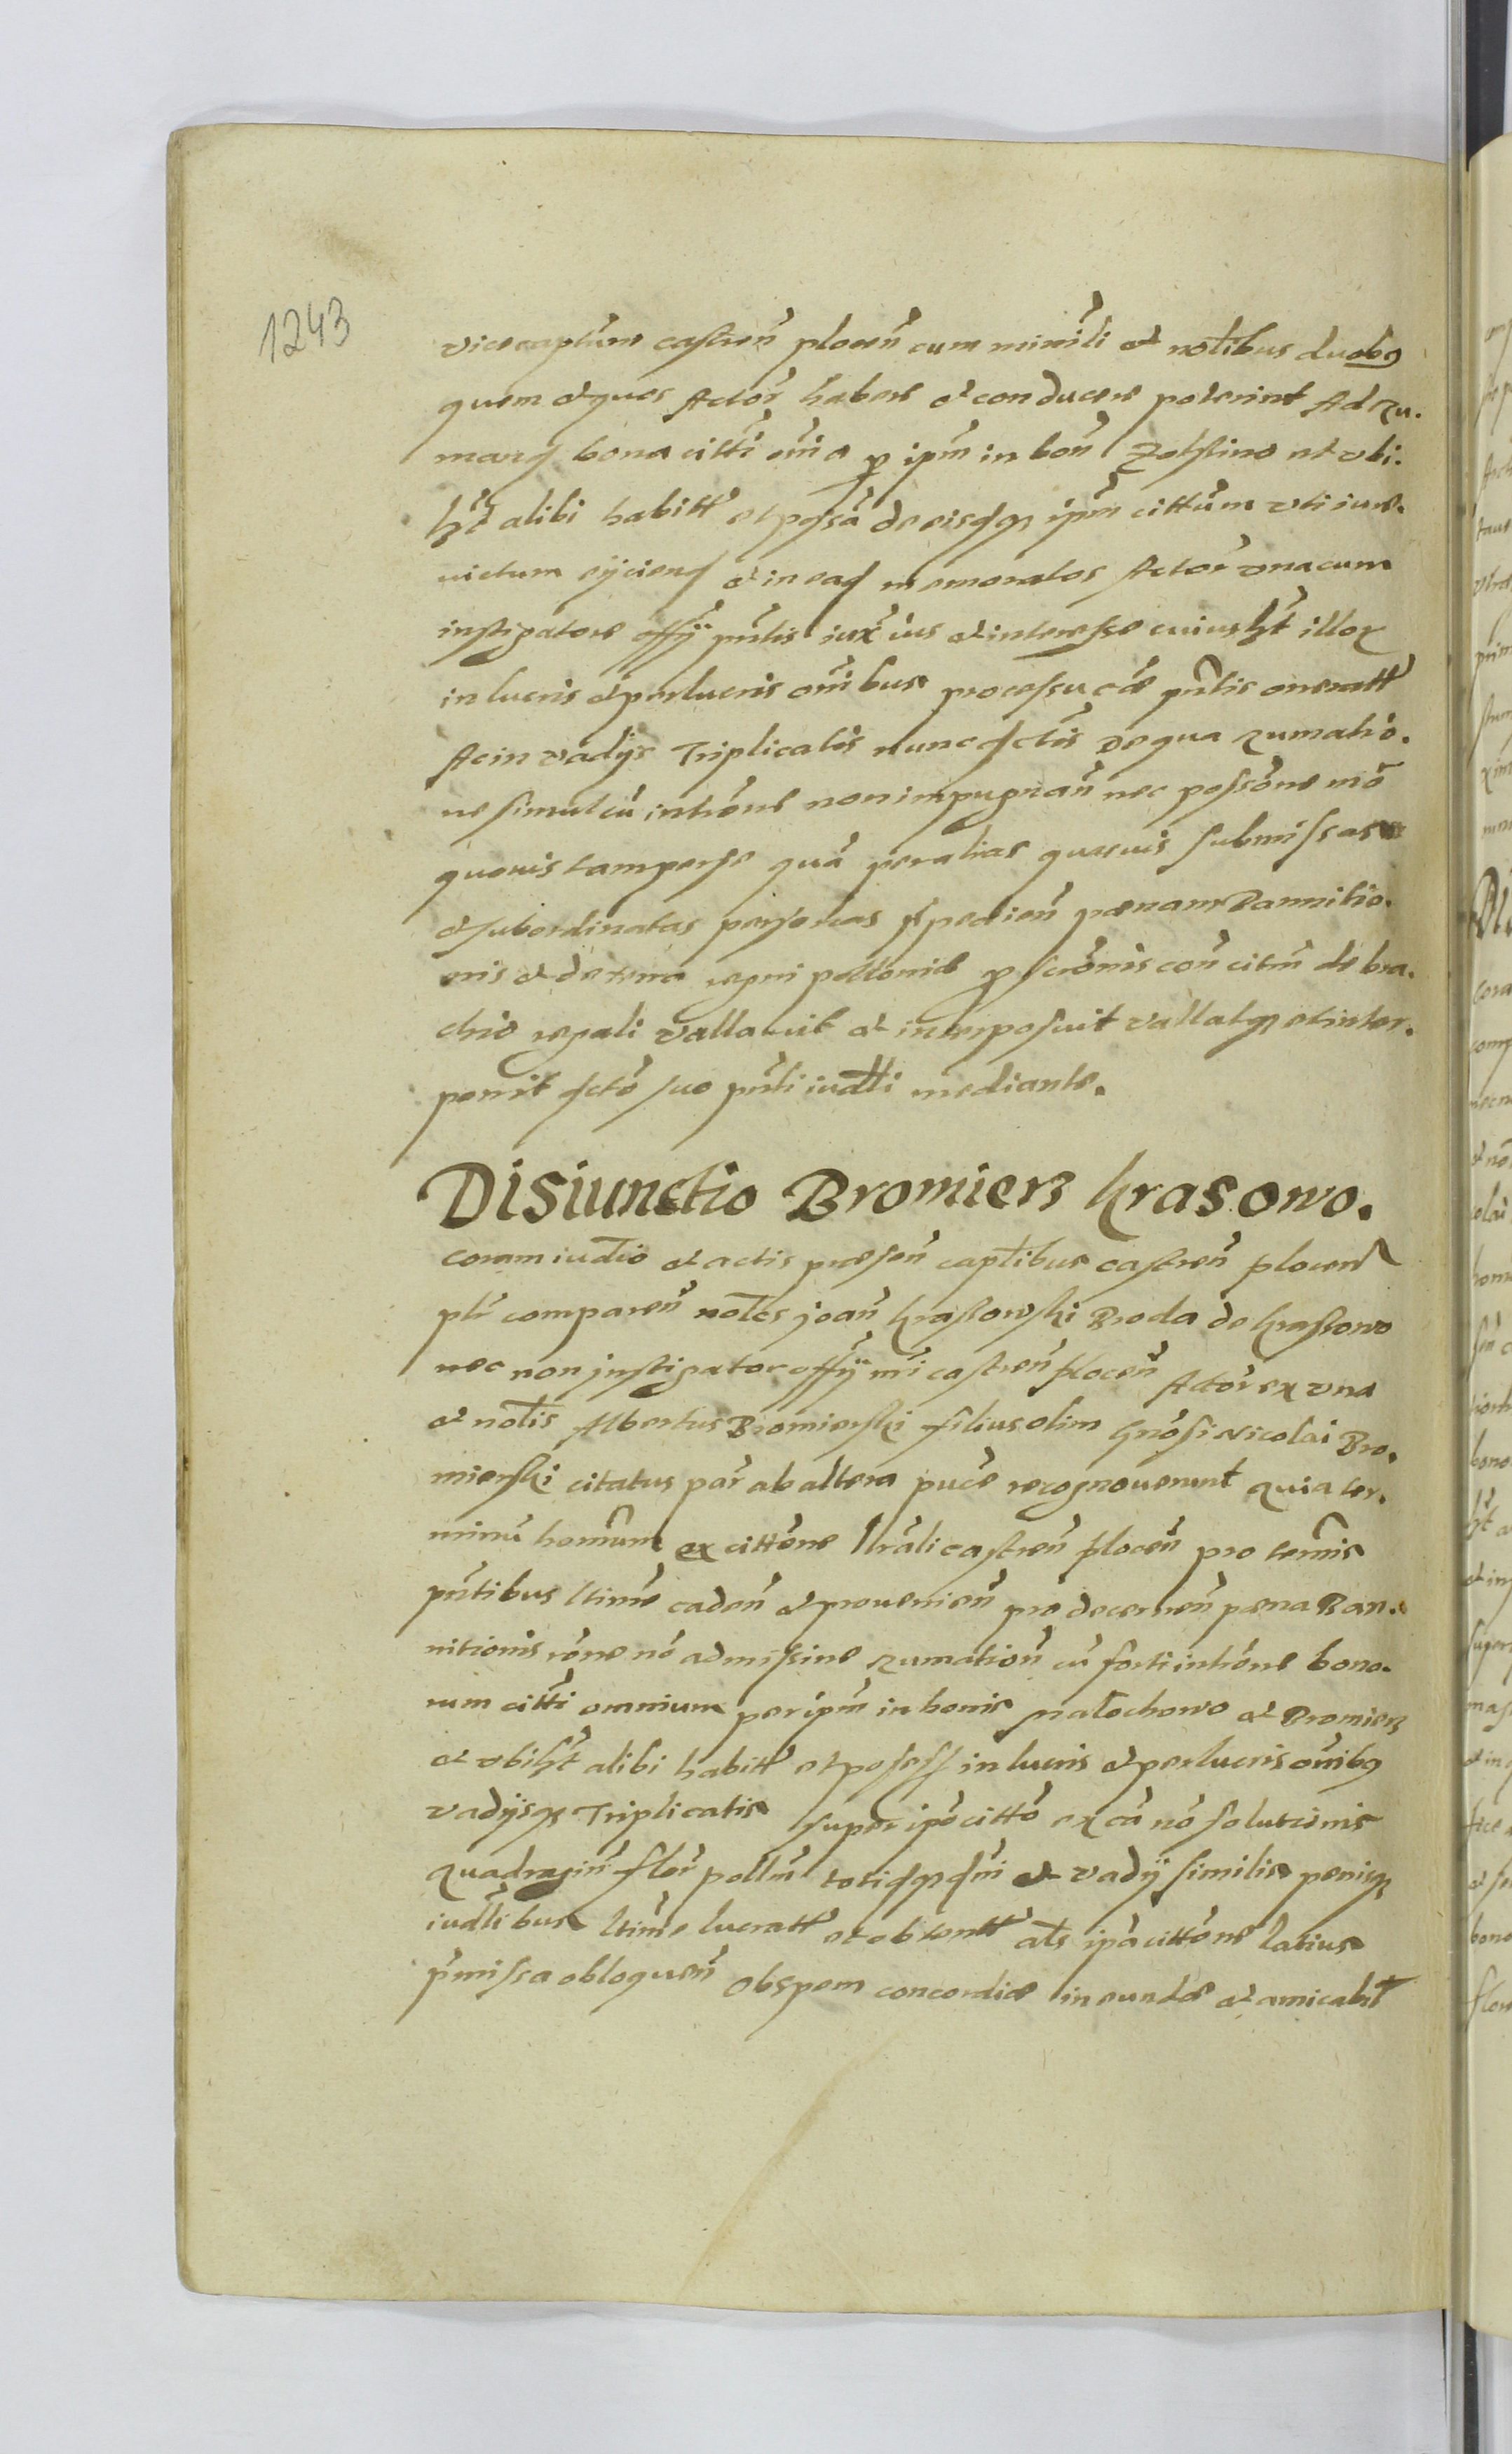 1243
vicecaptūm castreñ ploceñ cum miniīli et nołibus duobꝫ
quem et quos Actor̄ habere et conducere poterint Ad ru.
mand bona citti oīa ꝑ ipm̄ in boñ et ubi.
lꝫt alibi habitt et possā de eisdqꝫ ipm̄ cittūm uti iure.
uictum eijciend et in ead memoratos Actor̄ una cum
instigatore offii pn̄tis iux̄ ius et interesse cuiuslꝫt illoꝝ
in lucris et perlucris oībus processu cāe pn̄tis oneratt
Ac in vadijs Triplicatis nunc dctis De qua rumatio.
ne simul cū intrōne non impugnañ nec possōne mō
quouis tam per se quā per alias quasuis submissas
et subordinatas personas Impedieñ pœnam Bannitio.
nis et de terra regni polloniæ ꝓscrōnis con̄ citm̄ de bra.
chio regali Vallauit et interposuit vallatqꝫ et inter.
ponit dctō suo pn̄ti iudłi mediante.
Disiunctio Bromierz Krasowo.
Coram iudīo et actis præseñ captłibus castreñ ploceñ
pl̄r compareñ nołes joañ Krassowski Broda de Krassowo
nec non jnstigator offij mī castreñ ploceñ Actor̄ ex una
et nołis Albertus Bromierski filius olim Gnōsi Nicolai Bro.
mierski citatus par̄ ab altera puce recognouerunt Quia ter.
minū homūm ex cittōne lr̄ali castreñ ploceñ pro termīs
pn̄tibus ltime cadeñ et prouenieñ pro decerneñ pœna Ban.
nitionis rōne nō admissine rumationī cū forti intrōne bono.
rum citti omnium per ipm̄ in bonis Małochowo et Bromierz
et ubilꝫt alibi habitt et possess in lucris et perlucris oībꝫ
vadijsqꝫ Triplicatis super ipō cittō ex cā nō solutionis
Quadragin̄ flor̄ pollm̄ totidqꝫ dm̄i et vadij similis penisqꝫ
iudłibus ltime lucratt et obtentt ałs ipā cittōne latius
p̄missa obloqueñ Ob spem concordiæ ineundæ et amicabł